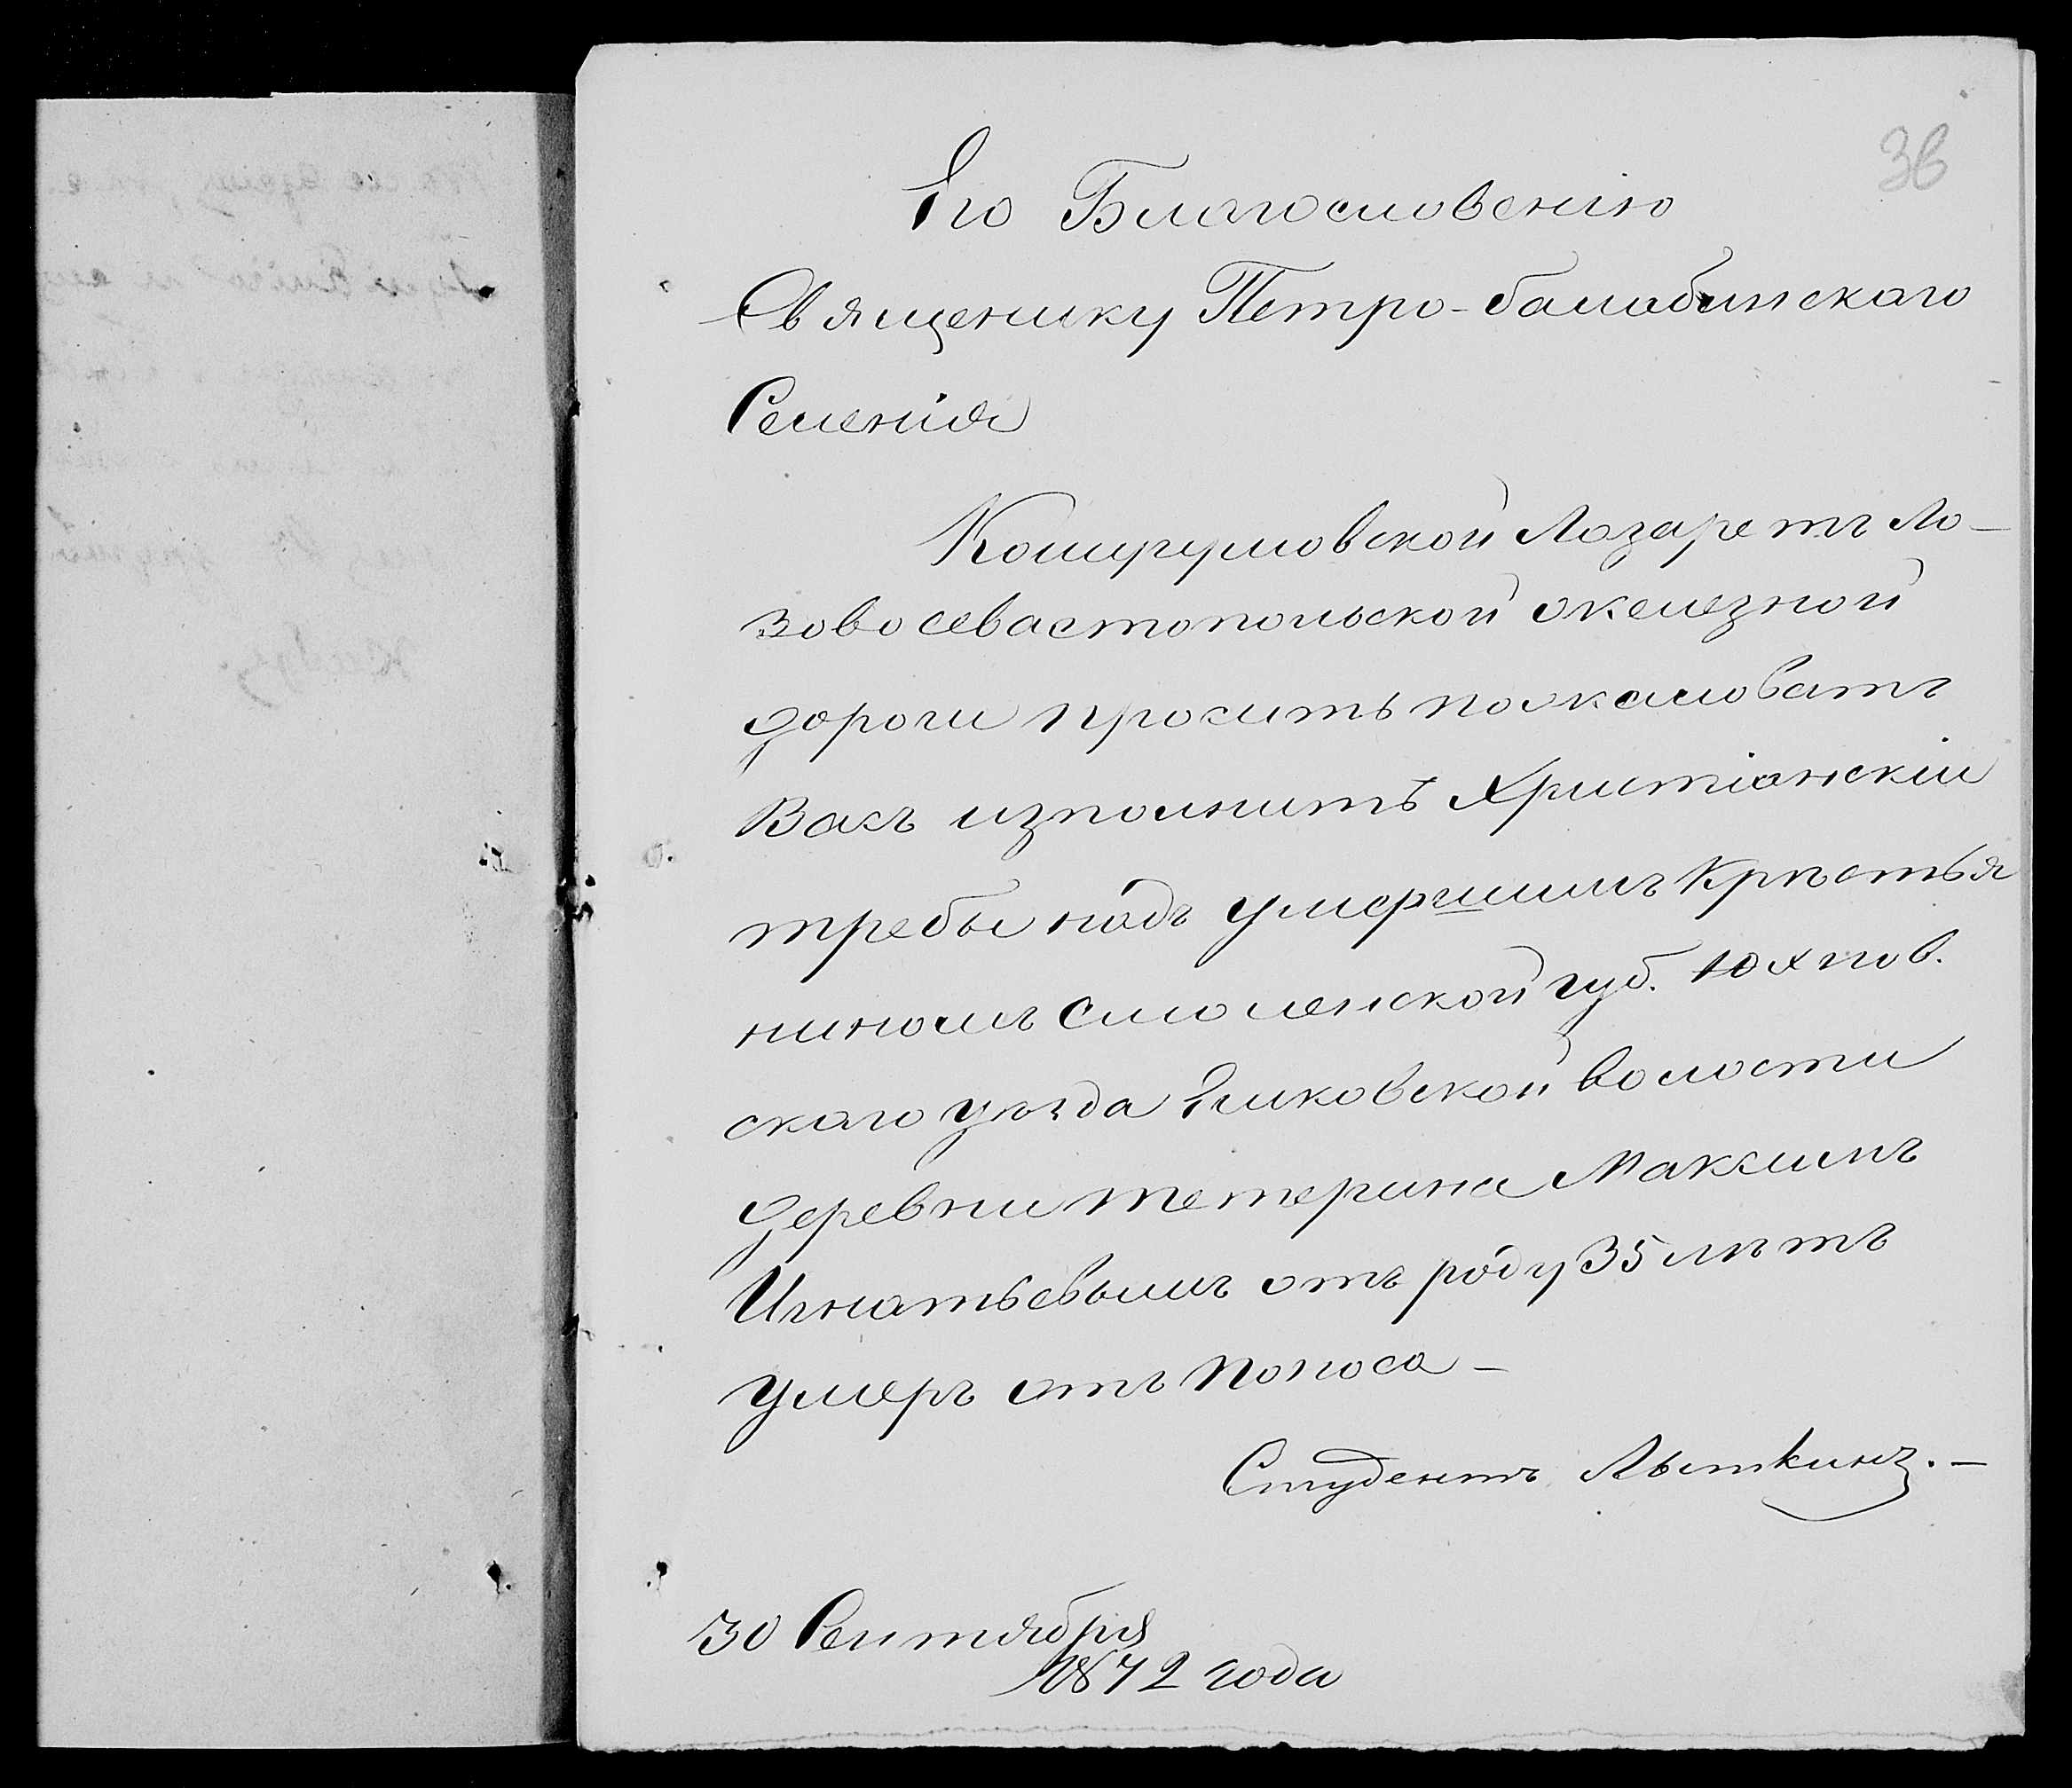 36
Его Благословенiю
Священику Петро-балабинскаго
Селенiя
Кошурумовской Лазаретъ Ло-
зовосевастопольской железной
дороги проситъ пожаловать
Васъ изполнить Христiанскiи
требы надъ умершимъ Крѣстья
ниномъ Смоленской губ. Юхнов.
скаго уѣзда Емковской волости
деревни Тетерина Максимъ
Игнатьевымъ отъ роду 35 лѣтъ
умеръ отъ поноса –
Студентъ Лыткинъ. –
30 Сентября
1872 года